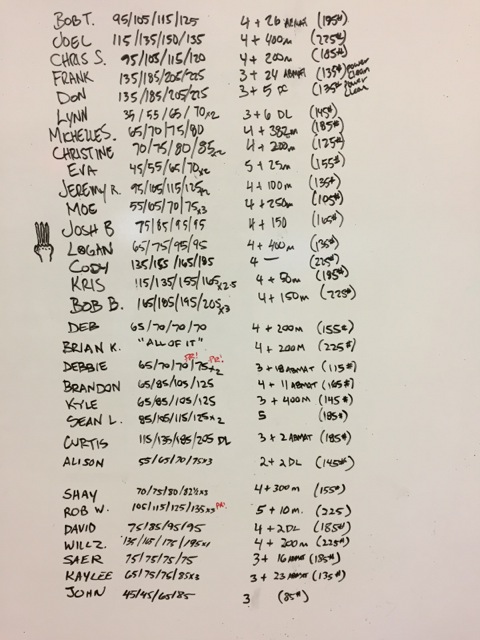 BOB T. 95/105/115/125 4 + 26 ABMAT (185#)
JOEL 115/135/150/135 4 + 400m (225#)
CHRIS S. 95/105/115/120 4 + 200m (185#)
FRANK 135/185/205/225 3 + 24 ABMAT (135#) power clean
DON 135/185/205/215 3 + 5 (135# Power clean
LYNN 35/55/65/70x2 3 + 6 DL (145#)
MICHELLE S. 65/70/75/80 4 + 382m (185#)
CHRISTINE 70/75/80/85x2 4 + 200m (125#)
EVA 45/55/65/70x2 5 + 25m (155#)
JEREMY R. 95/105/115/125x2 4 + 100m (135#)
MOE 55/65/70/75x3 4 + 250m (105#)
JOSH B 75/85/95/95 4 + 150 (165#)
LOGAN 65/75/95/95 4 + 400m (135#)
CODY 135/155/165/185 4 — (225#)
KRIS 115/135/155/165x2.5 4 + 50m (185#)
BOB B. 165/185/195/205x3 4 + 150m (225#)
DEB 65/70/70/70 4 + 200m (155#)
BRIAN K. "ALL OF IT" 4 + 200M (225#)
DEBBIE 65/70/70/75x2 PR! PR! 3 + 18 ABMAT (115#)
BRANDON 65/85/105/125 4 + 11 ABMAT (165#)
KYLE 65/85/105/125 3 + 400m (145#)
SEAN L. 85/105/115/125x2 5 (185#)
CURTIS 115/135/185/205 DL 3 + 2 ABMAT (185#)
ALISON 55/65/70/75x3 2 + 2 DL (145#)
SHAY 70/75/80/82½x3 4 + 300m (155#)
ROB W. 105/115/125/135x3 PR! 5 + 10m. (225)
DAVID 75/85/95/95 4 + 2DL (185#)
WILL Z. 135/145/175/195x1 4 + 200m (225#)
SAER 75/75/75/75 3 + 16 ABMAT (185#)
KAYLEE 65/75/75/85x3 3 + 23 ABMAT (135#)
JOHN 45/45/65/85 3 (85#)